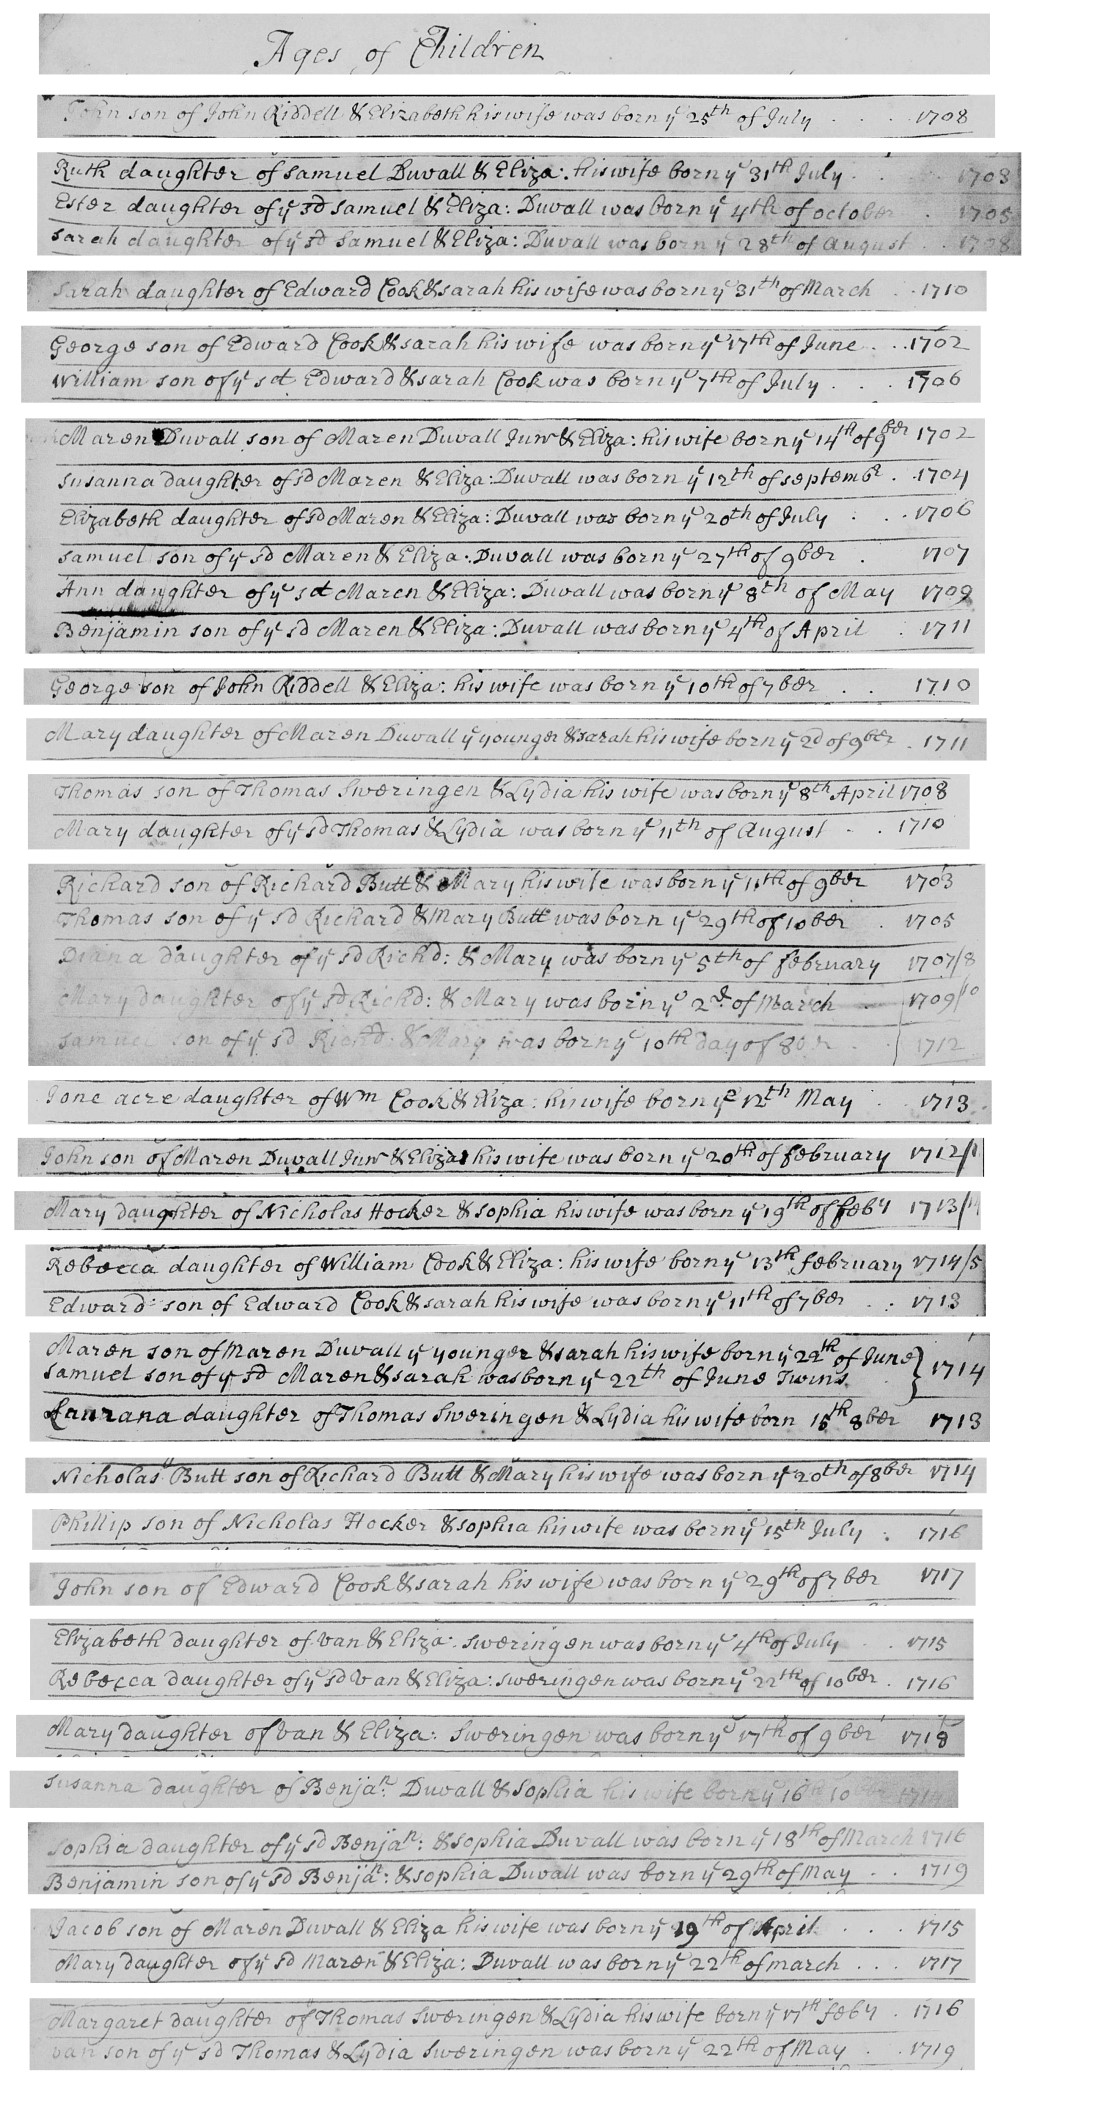 Ages of Children
John son of John Riddell & Elizabeth his wife was born ye 25th of July 1708
Ruth daughter of Samuel Duvall & Eliza: his wife born ye 31th July 1703
Ester daughter of ye sd Samuel & Eliza: Duvall was born ye 4th of october 1705
Sarah daughter of ye sd Samuel & Eliza: Duvall was born ye 28th of August 1708
Sarah daughter of Edward Cook & Sarah his wife was born ye 31th of March 1710
George son of Edward Cook & Sarah his wife was born ye 17th of June 1702
William son of ye sd Edward & Sarah Cook was born ye 7th of July 1706
Maren Duvall son of Maren Duvall Junr & Eliza: his wife born ye 14th of 9ber 1702
Susanna daughter of sd Maren & Eliza: Duvall was born ye 12th of Septembr 1704
Elizabeth daughter of sd Maren & Eliza: Duvall was born ye 20th of July 1706
Samuel son of ye sd Maren & Eliza: Duvall was born ye 27th of 9ber 1707
Ann daughter of ye sd Maren & Eliza: Duvall was born ye 8th of May 1709
Benjamin son of ye sd Maren & Eliza: Duvall was born ye 4th of April 1711
George son of John Riddell & Eliza: his wife was born ye 10th of 7ber 1710
Mary daughter of Maren Duvall ye younger & Sarah his wife born ye 2d of 9ber 1711
Thomas son of Thomas Sweringen & Lydia his wife was born ye 8th April 1708
Mary daughter of ye sd Thomas & Lydia was born ye 11th of August 1710
Richard son of Richard Butt & Mary his wife was born ye 11th of 9ber 1703
Thomas son of ye sd Richard & Mary Butt was born ye 29th of 10ber 1705
Diana daughter of ye sd Richd: & Mary was born ye 5th of february 1707/8
Mary daughter of ye sd Richd: & Mary was born ye 2d of March 1709/10
Samuel son of ye sd Richd: & Mary was born ye 10th day of 8ber 1712
Jone acre daughter of Wm Cook & Eliza: his wife born ye 12th May 1713
John son of Maren Duvall Junr & Eliza: his wife was born ye 20th of february 1712/
Mary daughter of Nicholas Hocker & Sophia his wife was born ye 19th of feby 1713/
Rebecca daughter of William Cook & Eliza: his wife born ye 13th february 1714/5
Edward son of Edward Cook & Sarah his wife was born ye 11th of 7ber 1713
Maren son of Maren Duvall ye younger & Sarah his wife born ye 22th of June
Samuel son of ye sd Maren & Sarah was born ye 22th of June Twins } 1714
Laurana daughter of Thomas Sweringen & Lydia his wife born 15th 8ber 1713
Nicholas Butt son of Richard Butt & Mary his wife was born ye 20th of 8ber 1714
Phillip son of Nicholas Hocker & Sophia his wife was born ye 15th July 1716
John son of Edward Cook & Sarah his wife was born ye 29th of 7ber 1717
Elizabeth daughter of Van & Eliza: Sweringen was born ye 4th of July 1715
Rebecca daughter of ye sd Van & Eliza: Sweringen was born ye 22th of 10ber 1716
Mary daughter of Van & Eliza: Sweringen was born ye 17th of 9ber 1718
Susanna daughter of Benjan: Duvall & Sophia his wife born ye 16th 10ber
Sophia daughter of ye sd Benjan: & Sophia Duvall was born ye 18th of March 1716
Benjamin son of ye sd Benjan: & Sophia Duvall was born ye 29th of May 1719
Jacob son of Maren Duvall & Eliza his wife was born ye 19th of April 1715
Mary daughter of ye sd Maren & Eliza: Duvall was born ye 22th of march 1717
Margaret daughter of Thomas Sweringen & Lydia his wife born ye 17th feby 1716
Van son of ye sd Thomas & Lydia Sweringen was born ye 22th of May 1719